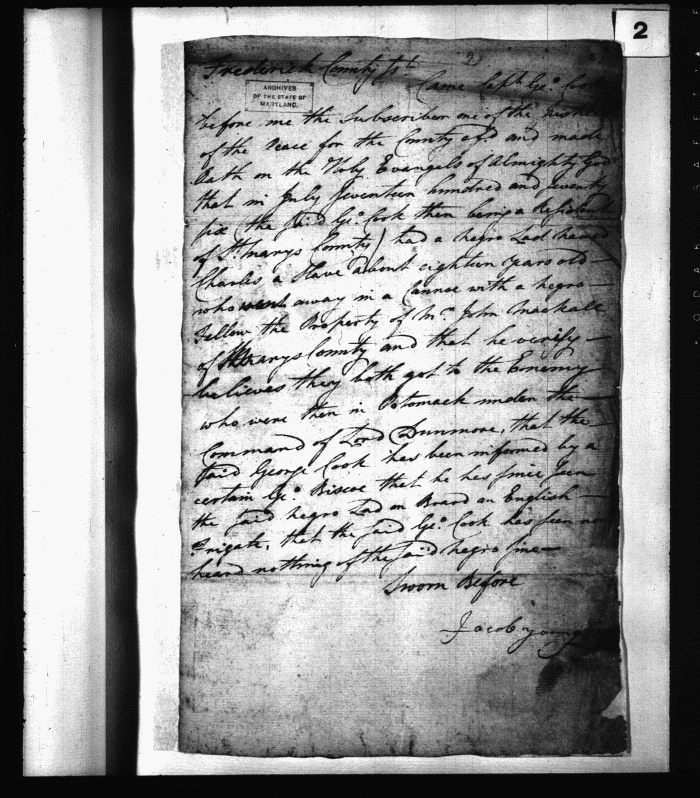 2
Frederick County Sct.
ARCHIVES
OF THE STATE OF
MARYLAND.
Came Capt. Geo. Cook
before me the Subscriber one of the Justices
of the Peace for the County afsd. and made
Oath on the Holy Evangels of Almighty God
that in July Seventeen hundred and seventy
six (the said Geo. Cook then being a
of St. Marys County) had a negro Lad named
Charles a Slave about eighteen years old
who went away in a Cannoe with a negro
Fellow the Property of Mr. John Mackall
of St Marys County and that he verily
believes they both got to the Enemy
who were then in Potomack under the
Command of Lord Dunmore, that the
Said George Cook has been informed by a
certain Geo. Biscoe that he has since seen
the said negro Lad on Board an English
Frigate, that the said Geo. Cook has seen nor
heard nothing of the said negro since
Sworn Before
Jacob Young